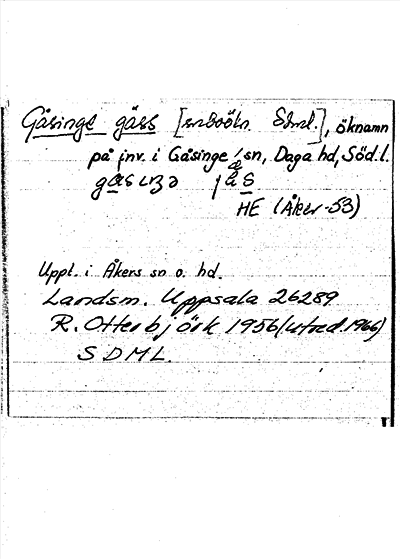 Gåsinge gäss [snboökn. Sdml.], öknamn
på inv. i Gåsinge sn, Daga hd, Söd.l.
HE (Åker -53)
Uppt. i Åkers sn o. hd.
Landsm. Uppsala 26289
R. Otterbjörk 1956 (utred. 1966)
SDML.